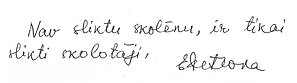 Nav sliktu skolēnu, ir tikai
slikti skolotāji,